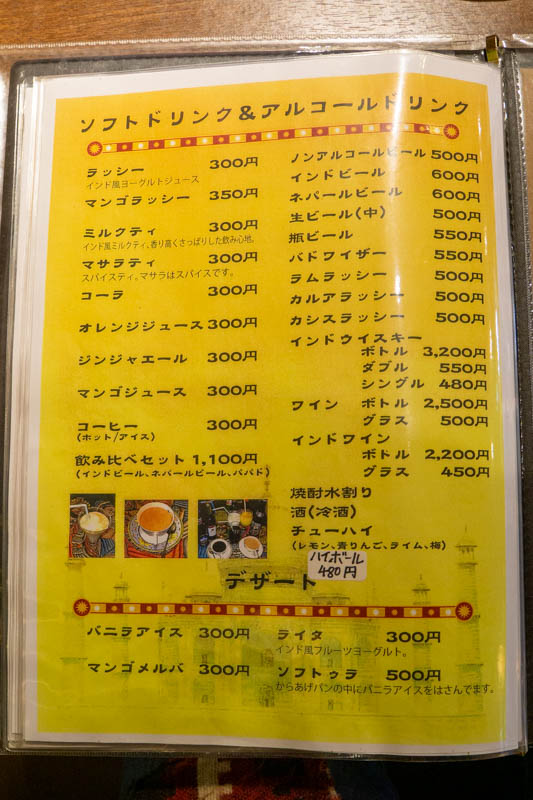 ソフトドリンク&アルコールドリンク
ラッシー 300円
インド風ヨーグルトジュース
マンゴラッシー 350円
ミルクティ 300円
インド風ミルクティ、香り高くさっぱりした飲み心地。
マサラティ 300円
スパイスティ。マサラはスパイスです。
コーラ 300円
オレンジジュース 300円
ジンジャエール 300円
マンゴジュース 300円
コーヒー 300円
(ホット/アイス)
飲み比べセット 1,100円
(インドビール、ネパールビール、パパド)
ノンアルコールビール 500円
インドビール 600円
ネパールビール 600円
生ビール(中) 500円
瓶ビール 550円
バドワイザー 550円
ラムラッシー 500円
カルアラッシー 500円
カシスラッシー 500円
インドウイスキー
ボトル 3,200円
ダブル 550円
シングル 480円
ワイン ボトル 2,500円
グラス 500円
インドワイン
ボトル 2,200円
グラス 450円
焼酎水割り
酒(冷酒)
チューハイ
(レモン、青りんご、ライム、梅)
ハイボール
480円
デザート
バニラアイス 300円
マンゴメルバ 300円
ライタ 300円
インド風フルーツヨーグルト。
ソフトゥラ 500円
からあげパンの中にバニラアイスをはさんでます。